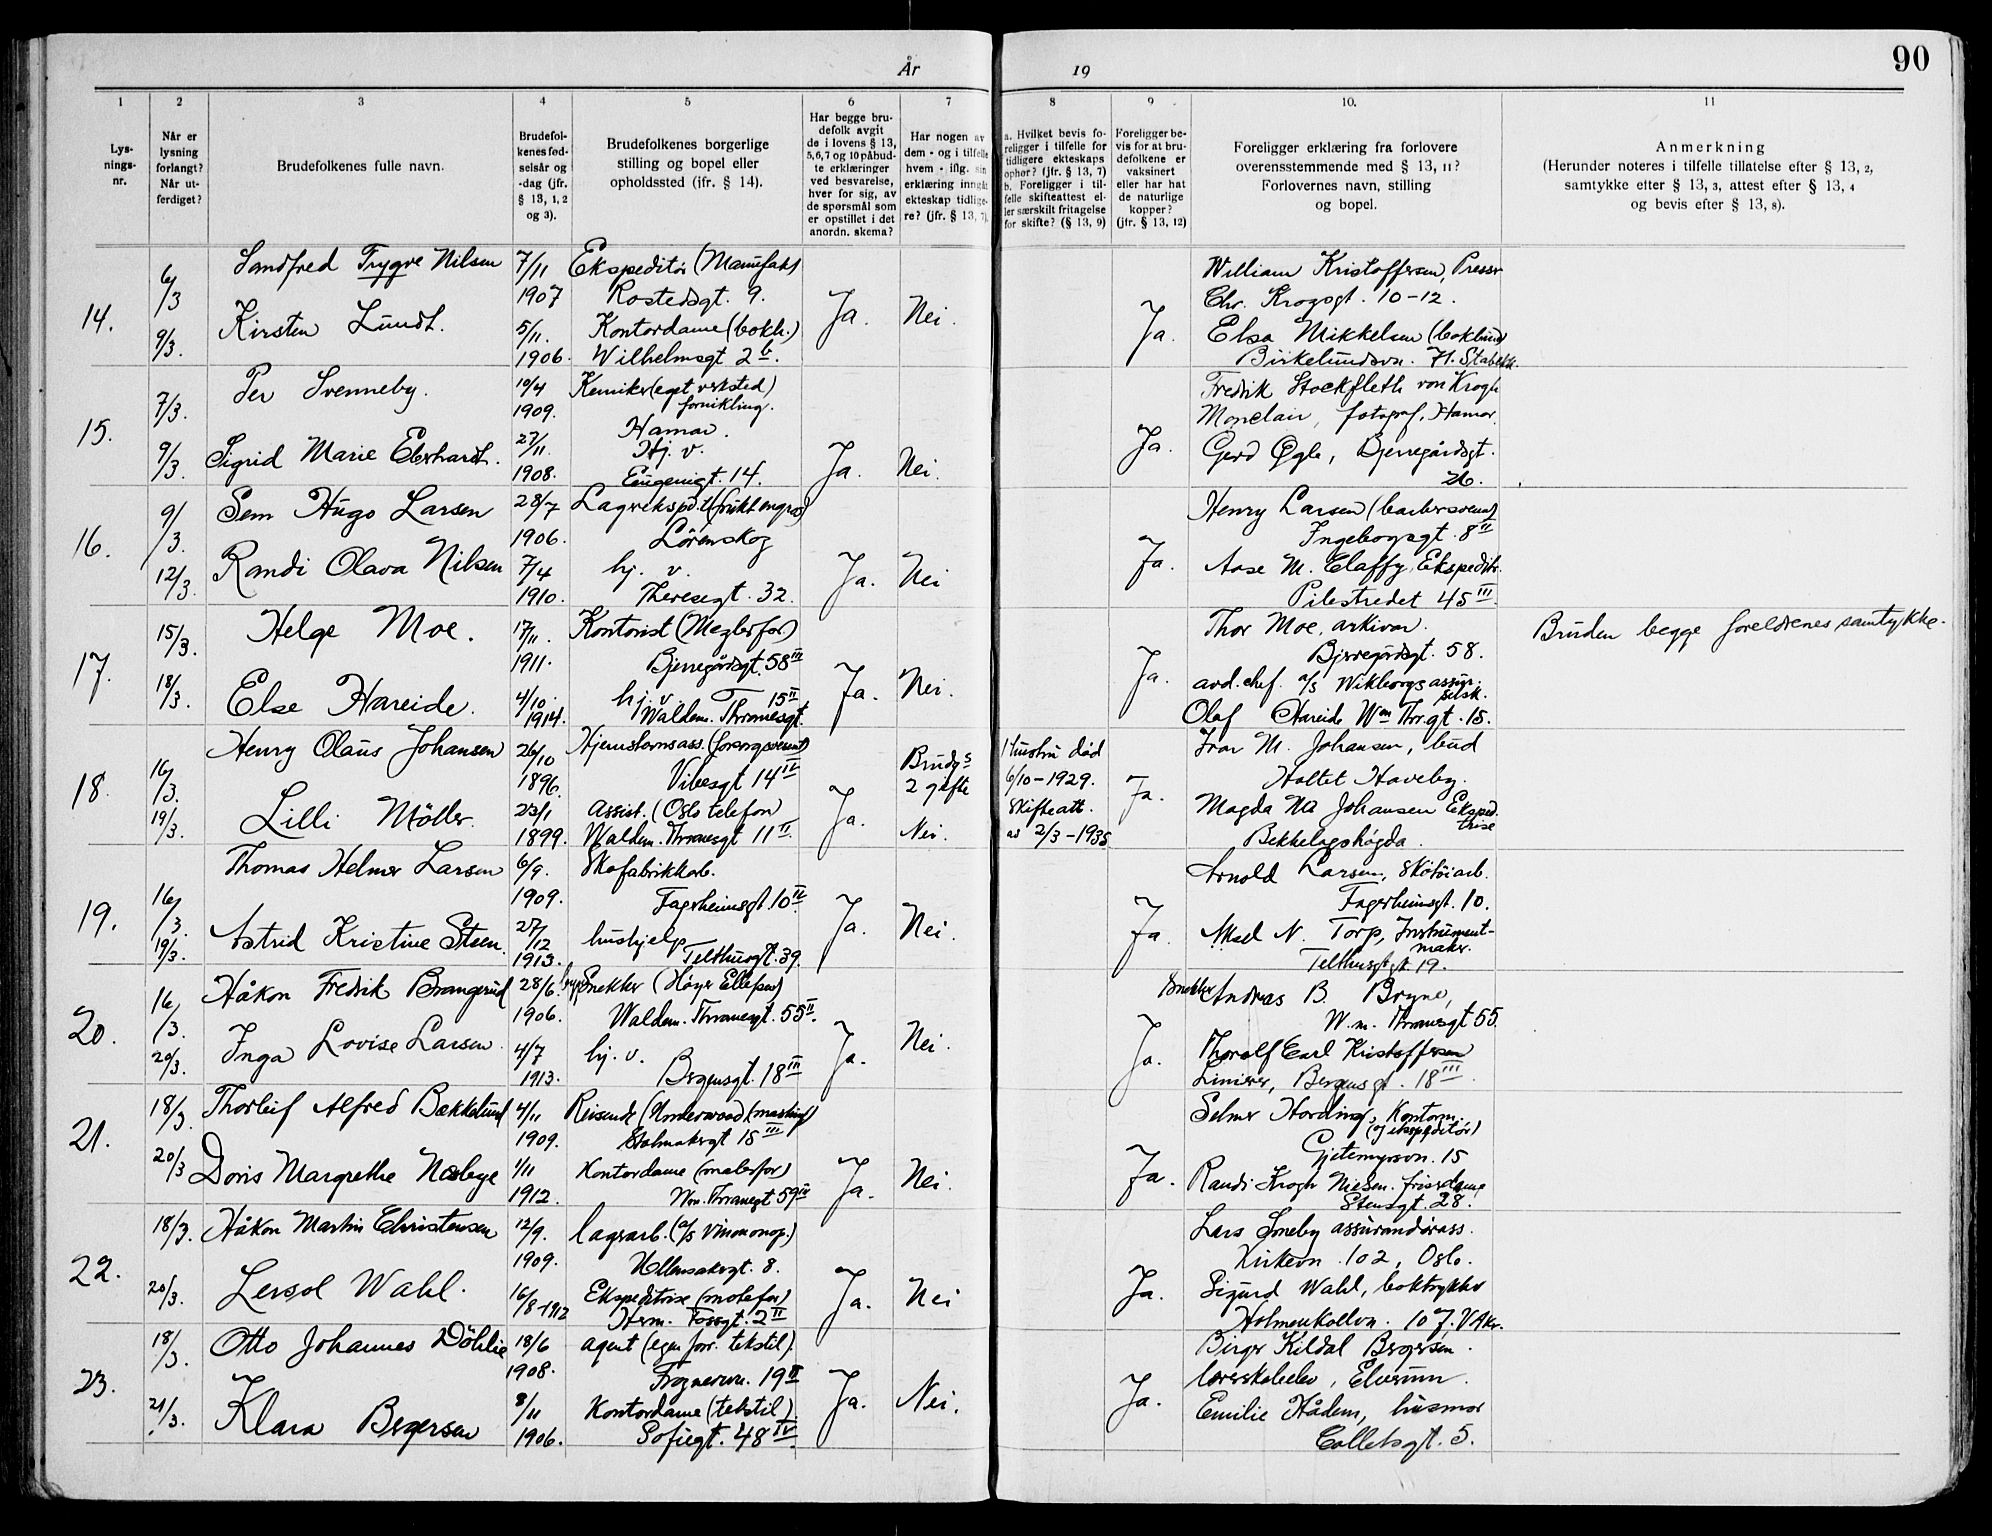 År 19
90
1 2 3 4 5 6 7 8 9 10. 11
Lys-
nings-
nr.
Når er
lysning
forlangt?
Når ut-
ferdiget?
Brudefolkenes fulle navn.
Brudefol-
kenes fød-
selsår og
-dag (jfr.
§ 13, 1, 2
og 3).
Brudefolkenes borgerlige
stilling og bopel eller
opholdssted (jfr. § 14).
Har begge bru-
defolk avgit
de i lovens § 13,
5, 6, 7 og 10 påbud-
te erklæringer
ved besvarelse,
hver for sig, av
de spørsmål som
er opstillet i det
anordn. skema?
Har nogen av
dem - og i tilfelle
hvem - iflg. sin
erklæring inngåt
ekteskap tidlige-
re? (jfr. § 13, 7).
a. Hvilket bevis fo-
religger i tilfelle for
tidligere ekteskaps
ophør? (jfr. § 13, 7)
b. Foreligger i til-
felle skifteattest el-
ler særskilt fritagelse
for skifte? (§ 13, 9)
Foreligger be-
vis for at bru-
defolkene er
vaksinert
eller har hat
de naturlige
kopper?
(jfr. § 13, 12)
Foreligger erklæring fra forlovere
overensstemmende med § 13, 11?
Forlovernes navn, stilling
og bopel.
Anmerkning
(Herunder noteres i tilfelle tillatelse efter § 13, 2,
samtykke efter § 13, 3, attest efter § 13, 4
og bevis efter § 13, 8).
14.
6/3
9/3.
Sandfred Trygve Nilsen
Kirsten Lundt.
7/11
1907
5/11.
1906.
Ekspeditør (Manufakt)
Rostedsgt. 9.
Kontordame (bokh.)
Wilhelmsgt 2 b.
Ja.
Nei.
Ja.
William Kristoffersen, Presser
Chr. Krogsgt. 10-12.
Elsa Mikkelsen (bokbind)
Birkelundsvn. 71. Stabekk.
15.
7/3.
9/3.
Per Svenneby.
Sigrid Marie Eberhardt.
10/4
1909.
27/11.
1908.
Kemiker (eget verksted)
fornikling.
Hamar.
Hj. v.
Eugeniegt. 14.
Ja.
Nei.
Ja.
Fredrik Stockfleth von Krogh
Monclair, fotograf, Hamar.
Gerd Øgle, Bjerregårdsgt.
26.
16.
9/3.
12/3.
Sem Hugo Larsen
Randi Olava Nilsen
28/7
1906.
7/4
1910.
Lagerekspd. (frukt engros)
Lörenskog
hj. v.
Theresegt. 32.
Ja.
Nei
Ja.
Henry Larsen (barbersvend)
Ingeborgsgt. 8 II
Aase M. Claffy, Ekspeditr.
Pilestredet 45 III.
17.
15/3.
18/3.
Helge Moe.
Else Hareide.
17/11.
1911.
4/10
1914.
Kontorist (Meglerfor)
Bjerregårdsgt. 58 III
hj. v. 15 II
Waldem. Thranesgt.
Ja.
Nei.
Ja.
Thor Moe, arkivar.
Bjerregårdsgt. 58.
avd. chef. a/s Wikborgs assur.
selsk.
Olaf Hareide Wm Thr.gt. 15.
Bruden begge foreldrenes samtykke.
18.
16/3.
19/3.
Henry Olaus Johansen
Lilli Möller.
26/10
1896.
23/1
1899.
Vibesgt 14 IV
Assist. (Oslo telefon
Waldem. Thranesgt 11 II.
Ja.
Brudg.s
2 gifte
Nei.
Hustru död
6/10-1929.
Skifteatt.
av 2/3-1935
Ja.
Ivar M. Johansen, bud
Holtet Haveby.
Magda Johansen Ekspedi-
trise
Bekkelagshögda.
19.
16/3.
19/3.
Thomas Helmer Larsen
Astrid Kristine Steen.
6/9.
1909.
27/12
1913.
Skofabrikkarb.
Fagerheimsgt. 10 IV.
hushjelp
Telthusgt. 39.
Ja.
Nei.
Ja.
Arnold Larsen, Skötöiarb.
Fagerheimsgt. 10.
Aksel N. Torp, Instrument-
maker.
Telthusgt. 19.
20.
16/3.
20/3.
Håkon Fredrik Brangerud
Inga Lovise Larsen.
28/6.
1906.
4/7
1913.
Snekker (Höyer Ellefsen)
Waldem. Thranesgt. 55 II.
hj. v.
Bergensgt. 18 III
Ja.
Nei.
Ja.
Snekker Andreas B. Bryne,
W.m. Thranesgt 55.
Thoralf Carl Kristoffersen
Linierer, Bergensgt. 18 III.
21.
18/3.
20/3
Thorleif Alfred Bækkelund
Doris Margrethe Næsbye
4/11
1909.
1/11
1912.
Reisende (Underwood (maskin)
Holmakergt 15 III
Kontordame (malerfor)
Wm. Thranesgt 59 IV
Ja.
Nei.
Ja.
Selmer Hording, Kontorm.
(og ekspeditör)
Gjetemyrsvn. 15
Randi Krogh Nielsen, frisördame
Stensgt. 28.
22.
18/3.
20/3.
Håkon Martin Christensen
Lersol Wahl.
12/9.
1909.
16/8-1912
lagerarb. (a/s Vinmonop.)
Ullensakergt. 8.
Ekspeditrise (motefor)
Herm. Fossgt. 2 II
Ja.
Nei
Ja.
Lars Smeby assurandörass.
Kirkevn. 102, Oslo.
Sigurd Wahl, boktrykker
Holmenkollvn. 107. V Aker.
23.
18/3.
21/3.
Otto Johannes Döhlie
Klara Bergersen
18/6
1908.
8/11
1906.
agent (egen forr. tekstil).
Frognervn. 19 II
Kontordame (tekstil)
Sofiegt. 48 IV.
Ja.
Nei.
Ja.
Birger Kildal Bergersen.
lærerskoleelev, Elverum.
Emilie Hådem, husmor
Colletsgt. 5.